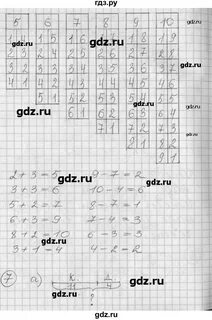 5 6 7 8 9 10
1 4 1 5 1 6 1 7 1 8 1 9
2 3 2 4 2 5 2 6 2 7 2 8
3 2 3 3 3 4 3 5 3 6 3 7
4 1 4 2 4 3 4 4 4 5 4 6
5 1 5 2 5 3 5 4 5 5
6 1 6 2 6 3 6 4
7 1 7 2 7 3
8 1 8 2
9 1
2+3=5 9-7=2
3+3=6 10-4=6
5+2=7 8-7=1
6+3=9 7-4=3
8+2=10 6-3=3
3+1=4 4-2=2
7 а) К. Д.
11 4
?
gdz.ru